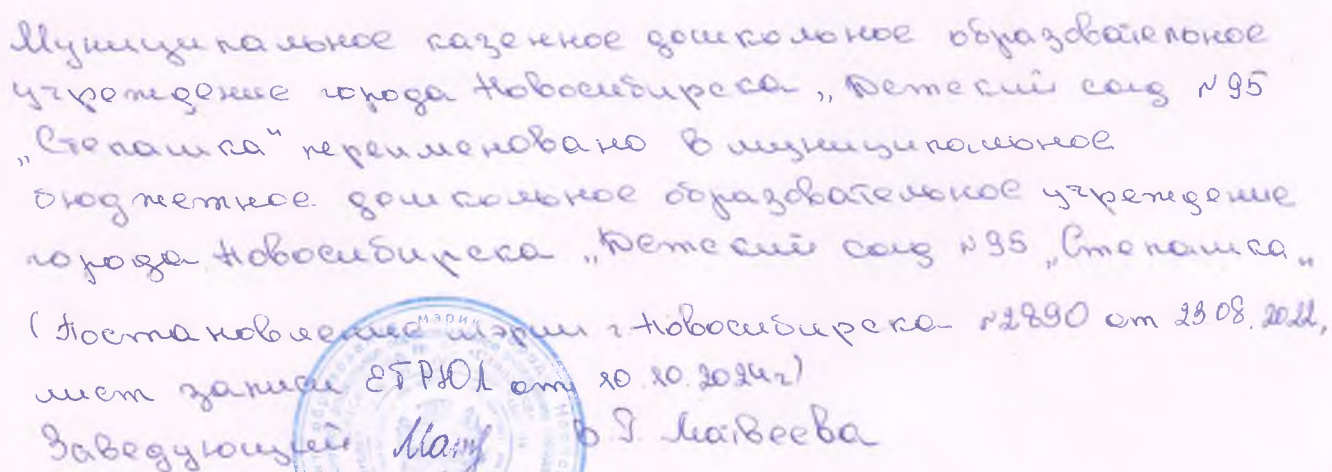 Муниципальное казенное дошкольное образовательное
учреждение города Новосибирска „Детский сад №95
„Степашка“ переименовано в муниципальное
бюджетное дошкольное образовательное учреждение
города Новосибирска „Детский сад №95 „Степашка„
(Постановление мэрии г Новосибирска №2890 от 08.
лист записи ЕГРЮЛ от 10.2024г)
Заведующий В. Г. Матвеева